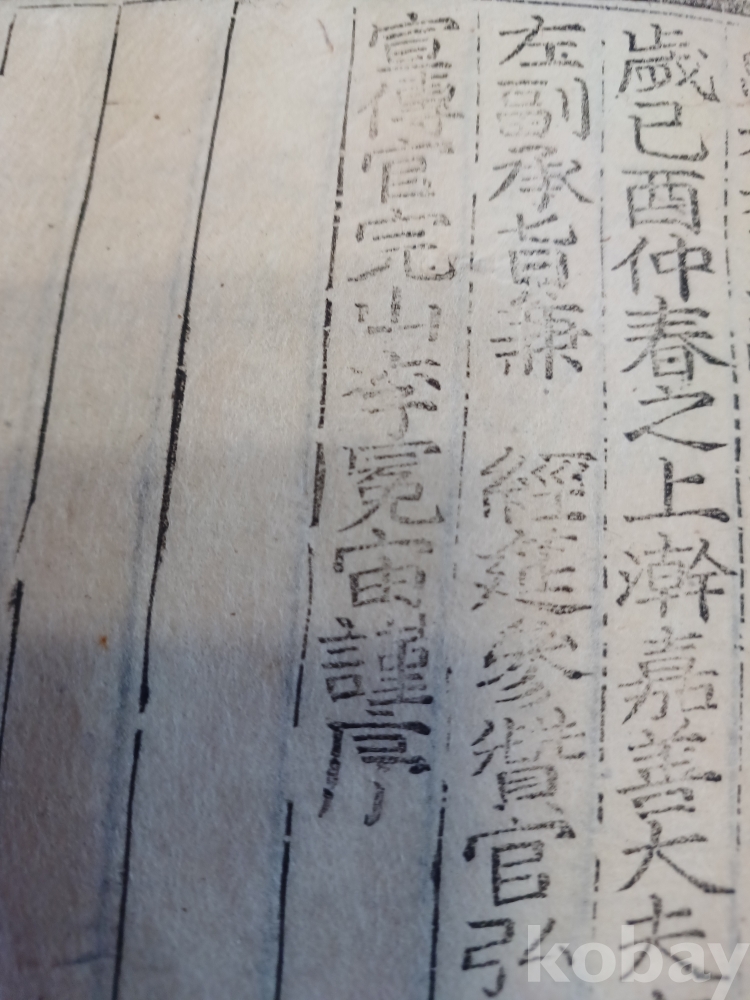 歲己酉仲春之上澣嘉善大夫
左副承旨兼 經筵參贊官弘
宣傳官完山李冕宙謹序
kobay